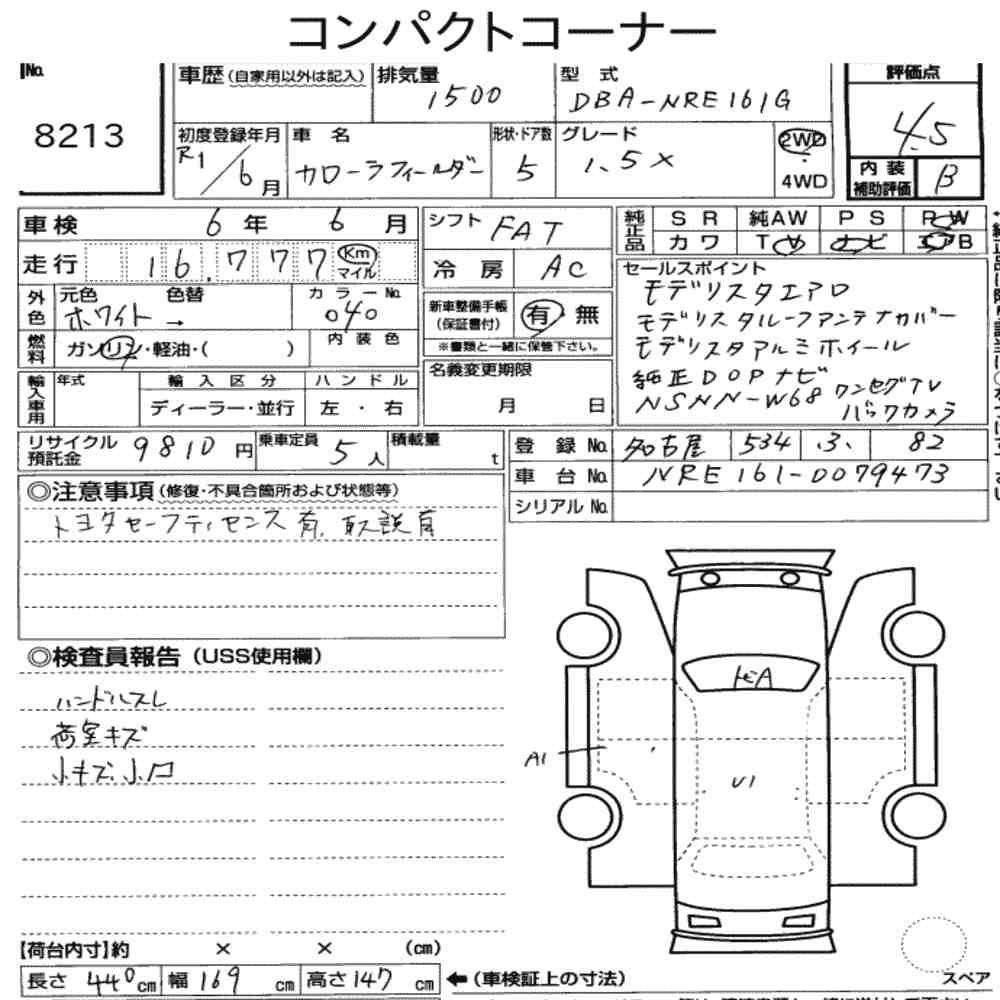 コンパクトコーナー
No. 8213
車歴(自家用以外は記入) 排気量 1500 型式 DBA-NRE161G 評価点 4.5
初度登録年月 R1/6月 車名 カローラフィールダー 形状・ドア数 5 グレード 1.5X 2WD 4WD 内装補助評価 B
車検 6年 6月
走行 16,777 Km マイル
外色 元色 ホワイト → 色替 カラーNo. 040
燃料 ガソリン・軽油・( ) 内装色
輸入車用 年式 輸入区分 ディーラー・並行 ハンドル 左・右
シフト FAT
冷房 AC
新車整備手帳(保証書付) 有・無
※書類と一緒に保管下さい。
名義変更期限 月 日
純正品 SR 純AW PS PW
カワ TV ナビ エアB
セールスポイント
モデリスタエアロ
モデリスタルーフアンテナカバー
モデリスタアルミホイール
純正DOPナビ
NSNN-W68 ワンセグTV
バックカメラ
リサイクル預託金 9810円 乗車定員 5人 積載量 t
登録No. 名古屋 534 3、 82
車台No. NRE161-0079473
シリアルNo.
◎注意事項(修復・不具合箇所および状態等)
トヨタセーフティセンス有、取説有
◎検査員報告(USS使用欄)
ハンドルスレ
荷室キズ
小キズ小凹
A1
U1
【荷台内寸】約 × × (cm)
長さ 440cm 幅 169cm 高さ 147cm ←(車検証上の寸法)
スペア